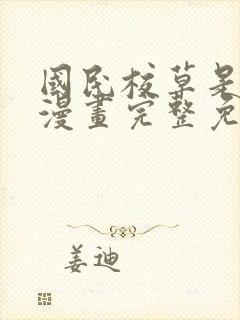 國民校草是
漫畫完整免
姜迪